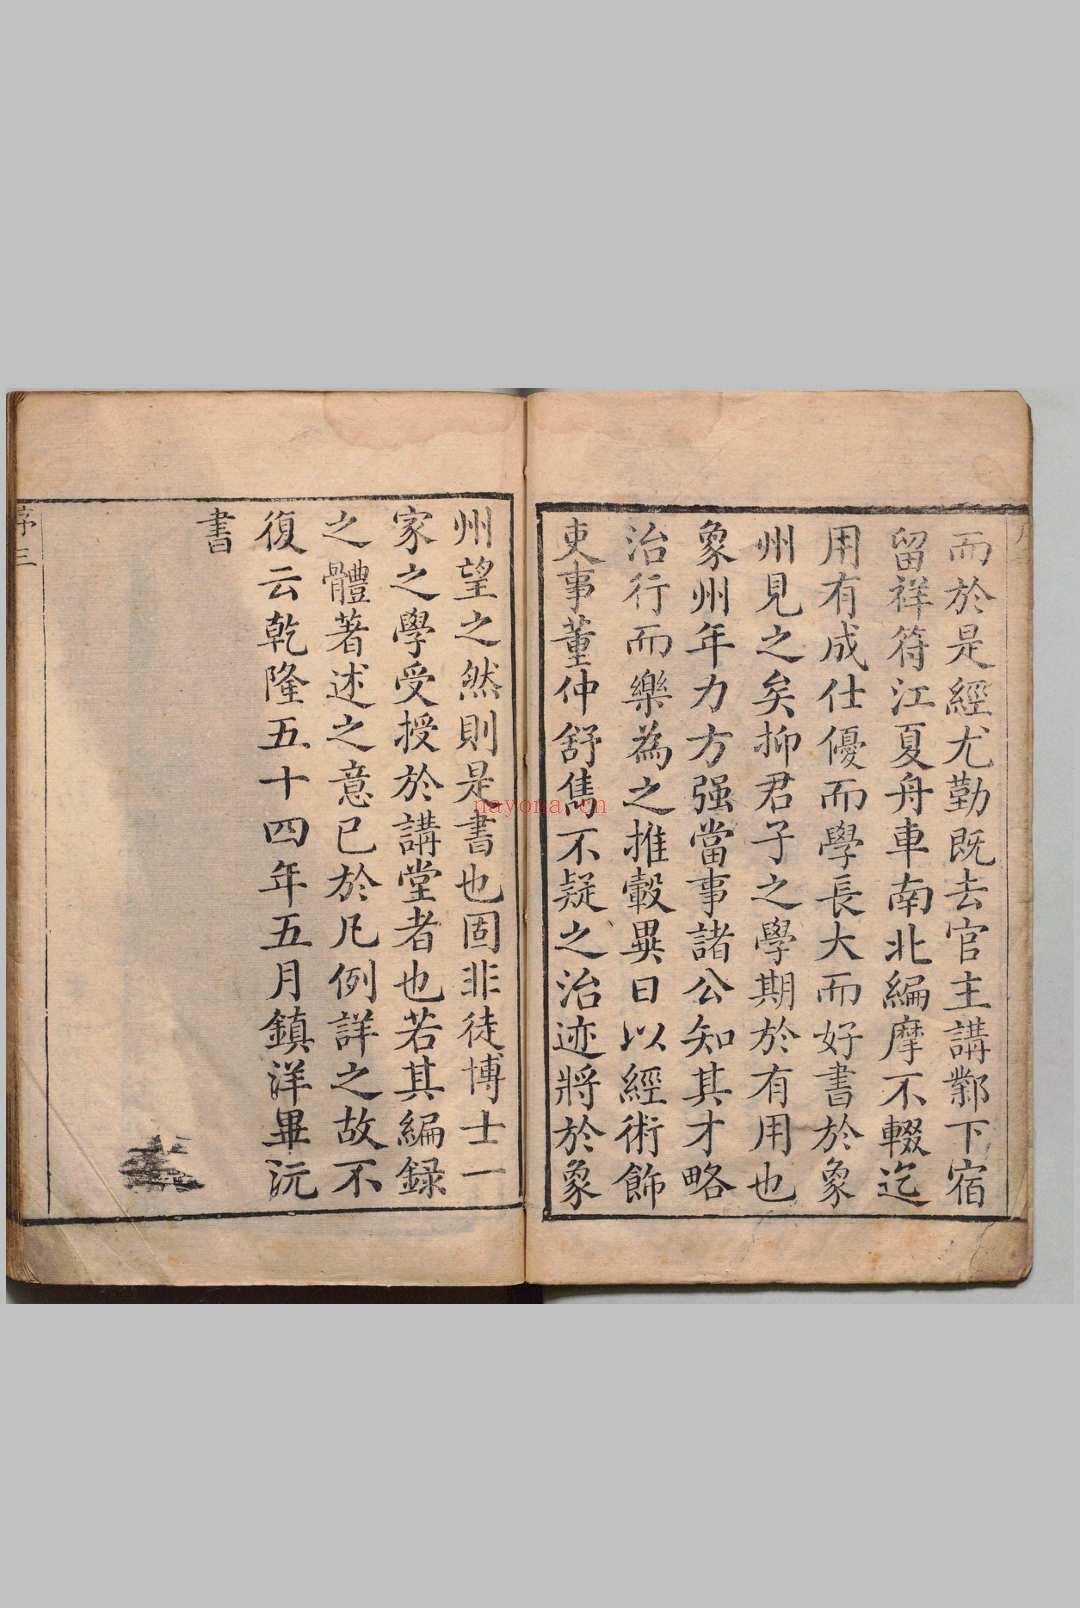 而於是經尤勤既去官主講鄴下宿
留祥符江夏舟車南北編摩不輟迄
用有成仕優而學長大而好書於象
州見之矣抑君子之學期於有用也
象州年力方强當事諸公知其才略
治行而樂為之推轂異日以經術飾
吏事董仲舒雋不疑之治迹將於象
州望之然則是書也固非徒博士一
家之學受授於講堂者也若其編録
之體著述之意已於凡例詳之故不
復云乾隆五十四年五月鎮洋畢沅
書
序三
nayona.cn